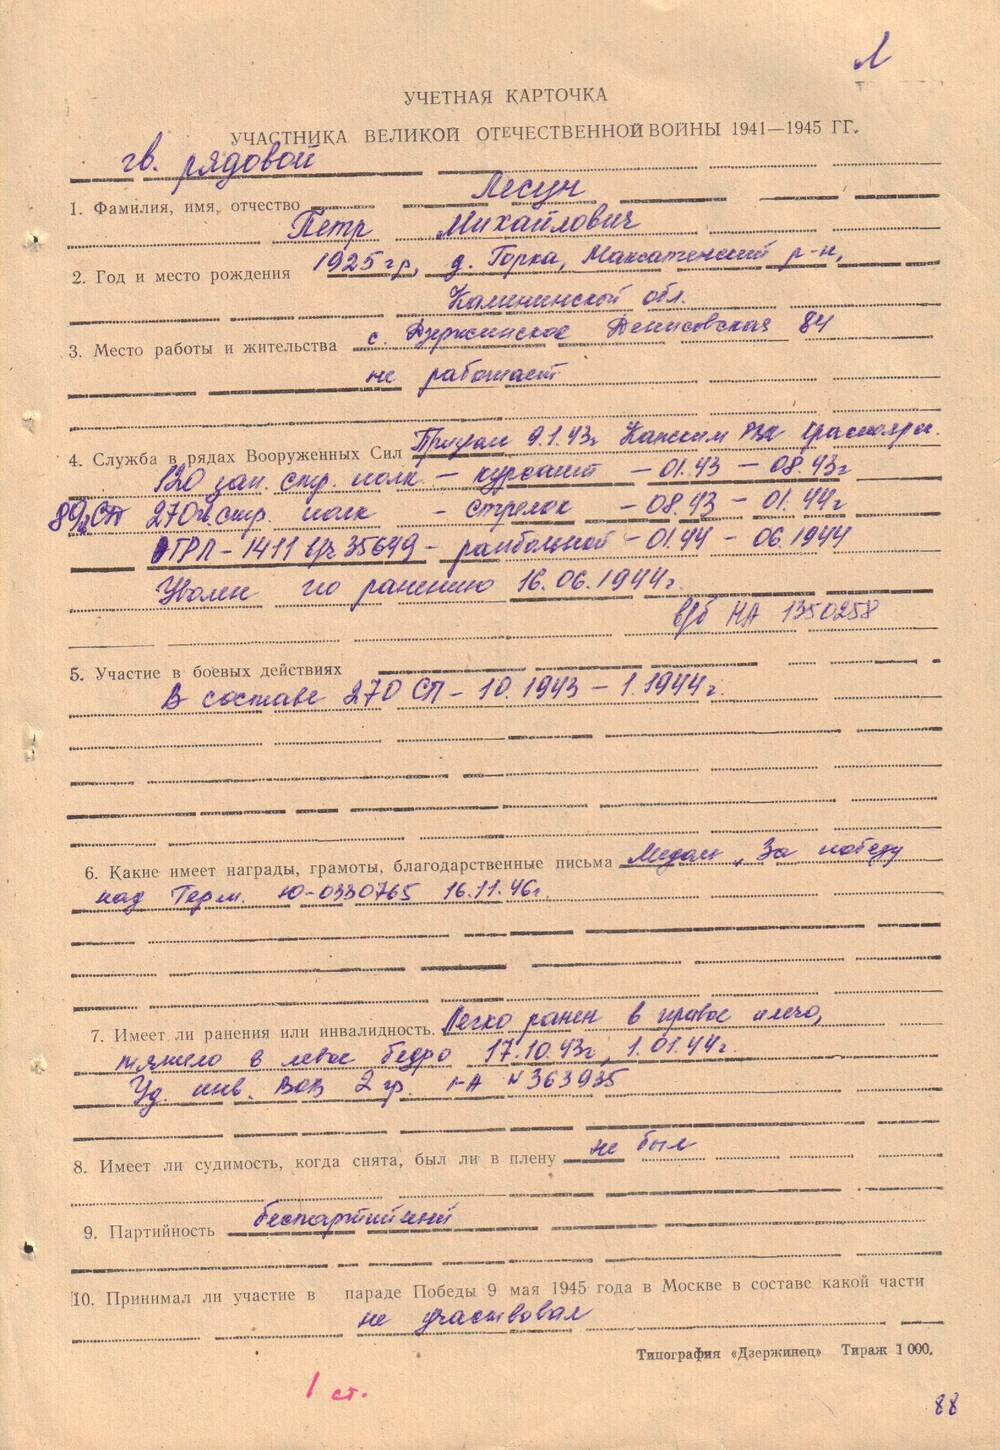 Л
УЧЕТНАЯ КАРТОЧКА
УЧАСТНИКА ВЕЛИКОЙ ОТЕЧЕСТВЕННОЙ ВОЙНЫ 1941—1945 ГГ.
гв. рядовой
1. Фамилия, имя, отчество Лесун
Петр Михайлович
2. Год и место рождения 1925 гр, д. Горка, Максатенский р-н,
Калининской обл.
3. Место работы и жительства с. Дзержинское Денисовская 84
не работает
4. Служба в рядах Вооруженных Сил Призван 9.1.43г Канским РВК Краснояр.
120 зап. стр. полк – курсант – 01.43 – 08.43г
89 СП 270 гв. стр. полк – стрелок – 08.43 – 01.44г
ГРЛ – 1411 в/ч 35699 – ранбольной – 01.44 – 06.1944
Уволен по ранению 16.06.1944г.
в/б НА 1350258
5. Участие в боевых действиях
В составе 270 СП – 10.1943 – 1.1944г.
6. Какие имеет награды, грамоты, благодарственные письма Медаль „За победу
над Герм. Ю-0330765 16.11.46г.
7. Имеет ли ранения или инвалидность. Легко ранен в правое плечо,
тяжело в левое бедро 17.10.43г, 1.01.44г.
Уд. инв. ВОВ 2 гр. I-А № 363935
8. Имеет ли судимость, когда снята, был ли в плену не был
9. Партийность беспартийный
10. Принимал ли участие в параде Победы 9 мая 1945 года в Москве в составе какой части
не участвовал
Типография «Дзержинец» Тираж 1 000.
1 ст.
88